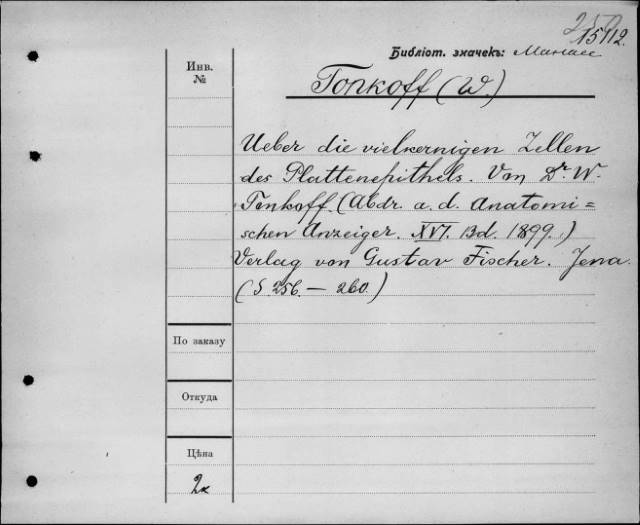 15112.
Библіот. значекъ: Манасс
Инв.
№
Tonkoff (W)
Ueber die vielkernigen Zellen
des Plattenepithels. Von Dr. W.
Tonkoff. (Abdr. a. d. Anatomi=
schen Anzeiger. XVI. Bd. 1899.)
Verlag von Gustav Fischer. Jena.
(S. 256. — 260.)
По заказу
Откуда
Цѣна